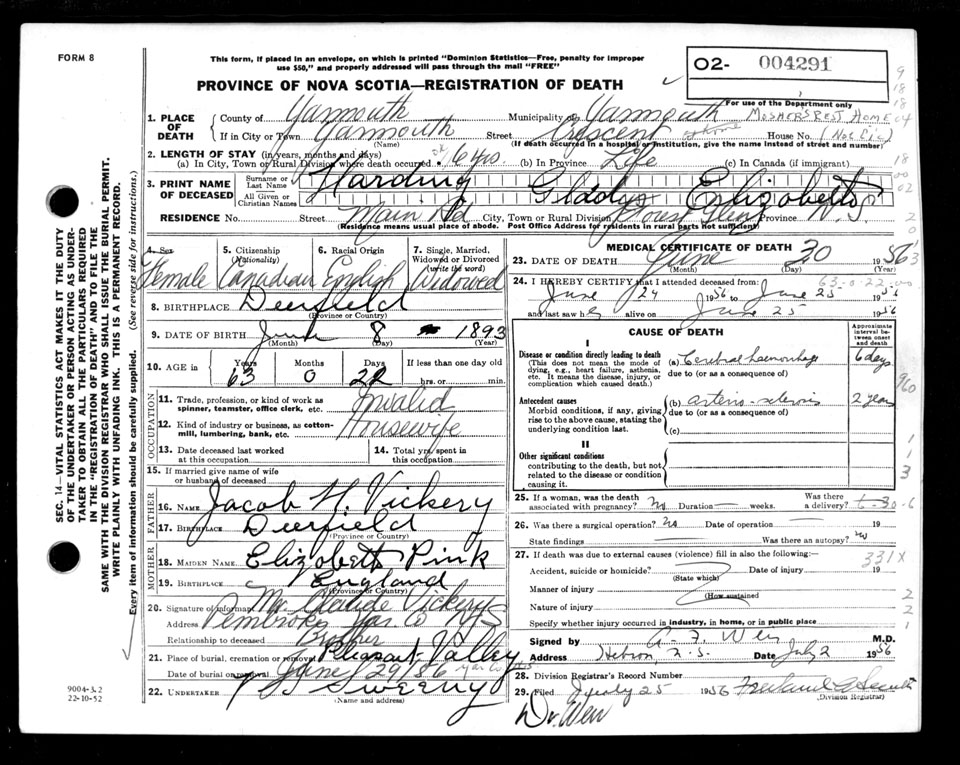 FORM 8
This form, if placed in an envelope, on which is printed "Dominion Statistics—Free, penalty for improper
use $50," and properly addressed will pass through the mail "FREE"
O2- 004291
PROVINCE OF NOVA SCOTIA—REGISTRATION OF DEATH
For use of the Department only
1. PLACE OF DEATH
County of Yarmouth Municipality of Yarmouth MOSHER'S REST HOME
If in City or Town Yarmouth Street Crescent House No. (Not Lic)
(Name) (If death occurred in a hospital or institution, give name instead of street and number)
2. LENGTH OF STAY (in years, months and days)
(a) In City, Town or Rural Division where death occurred (b) In Province Life (c) In Canada (if immigrant)
3. PRINT NAME OF DECEASED
Surname or Last Name Harding
All Given or Christian Names Gladys Elizabeth
RESIDENCE No. Street Main Rd City, Town or Rural Division Forest Glen Province N.S
(Residence means usual place of abode. Post Office Address for residents in rural parts not sufficient)
4. Sex 5. Citizenship (Nationality) 6. Racial Origin 7. Single, Married, Widowed or Divorced (write the word)
Female Canadian English Widowed
8. BIRTHPLACE Deerfield
(Province or Country)
9. DATE OF BIRTH June 8 1893
(Month) (Day) (Year)
10. AGE in Years Months Days If less than one day old
63 0 22 hrs. or min.
OCCUPATION
11. Trade, profession, or kind of work as
spinner, teamster, office clerk, etc. Invalid
12. Kind of industry or business, as cotton-
mill, lumbering, bank, etc. Housewife
13. Date deceased last worked
at this occupation
14. Total yrs. spent in
this occupation
15. If married give name of wife
or husband of deceased
FATHER
16. NAME Jacob H. Vickery
17. BIRTHPLACE Deerfield
(Province or Country)
MOTHER
18. MAIDEN NAME Elizabeth Pink
19. BIRTHPLACE England
(Province or Country)
20. Signature of informant Mr. Claude Vickery
Address Pembroke Yar. Co N.S
Relationship to deceased Brother
21. Place of burial, cremation or removal Pleasant Valley
Date of burial or removal June 29/56
22. UNDERTAKER Sweeny
(Name and address)
MEDICAL CERTIFICATE OF DEATH
23. DATE OF DEATH June 30 1956
(Month) (Day) (Year)
63-0-22
24. I HEREBY CERTIFY that I attended deceased from:
June 24 1956 to June 25 1956
and last saw her alive on June 25 1956
CAUSE OF DEATH
Approximate interval between onset and death
I
Disease or condition directly leading to death
(This does not mean the mode of
dying, e.g., heart failure, asthenia,
etc. It means the disease, injury, or
complication which caused death.)
(a) Cerebral haemorrhage 6 days
due to (or as a consequence of)
Antecedent causes
Morbid conditions, if any, giving
rise to the above cause, stating the
underlying condition last.
(b) arterio-sclerosis 2 years
due to (or as a consequence of)
(c)
II
Other significant conditions
contributing to the death, but not
related to the disease or condition
causing it.
25. If a woman, was the death
associated with pregnancy? No Duration weeks. Was there a delivery?
6-30-6
26. Was there a surgical operation? No Date of operation 19
State findings Was there an autopsy? No
27. If death was due to external causes (violence) fill in also the following:— 331X
Accident, suicide or homicide? Date of injury 19
(State which)
Manner of injury
(How sustained
Nature of injury
Specify whether injury occurred in industry, in home, or in public place
Signed by A. F. Weir M.D.
Address Hebron, N.S. Date July 2 1956
28. Division Registrar's Record Number
29. Filed July 25 1956
(Division Registrar)
Dr. Weir
SEC. 14—VITAL STATISTICS ACT MAKES IT THE DUTY
OF THE UNDERTAKER OR PERSON ACTING AS UNDER-
TAKER TO OBTAIN ALL THE PARTICULARS REQUIRED
IN THE "REGISTRATION OF DEATH" AND TO FILE THE
SAME WITH THE DIVISION REGISTRAR WHO SHALL ISSUE THE BURIAL PERMIT.
WRITE PLAINLY WITH UNFADING INK. THIS IS A PERMANENT RECORD.
Every item of information should be carefully supplied. (See reverse side for instructions.)
9004-3.2
22-10-52